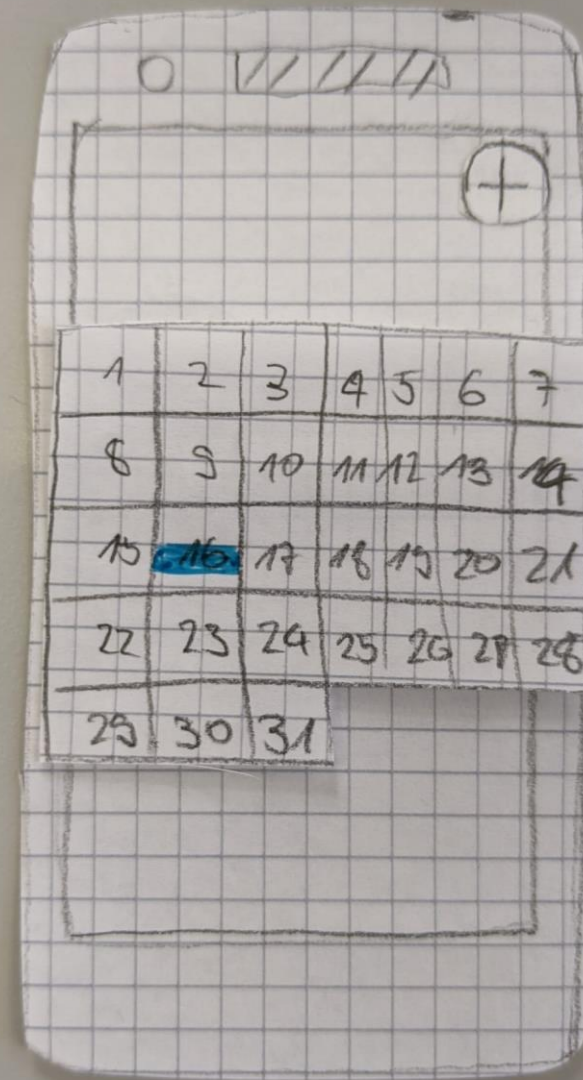 1 2 3 4 5 6 7
8 9 10 11 12 13 14
15 16 17 18 19 20 21
22 23 24 25 26 27 28
29 30 31